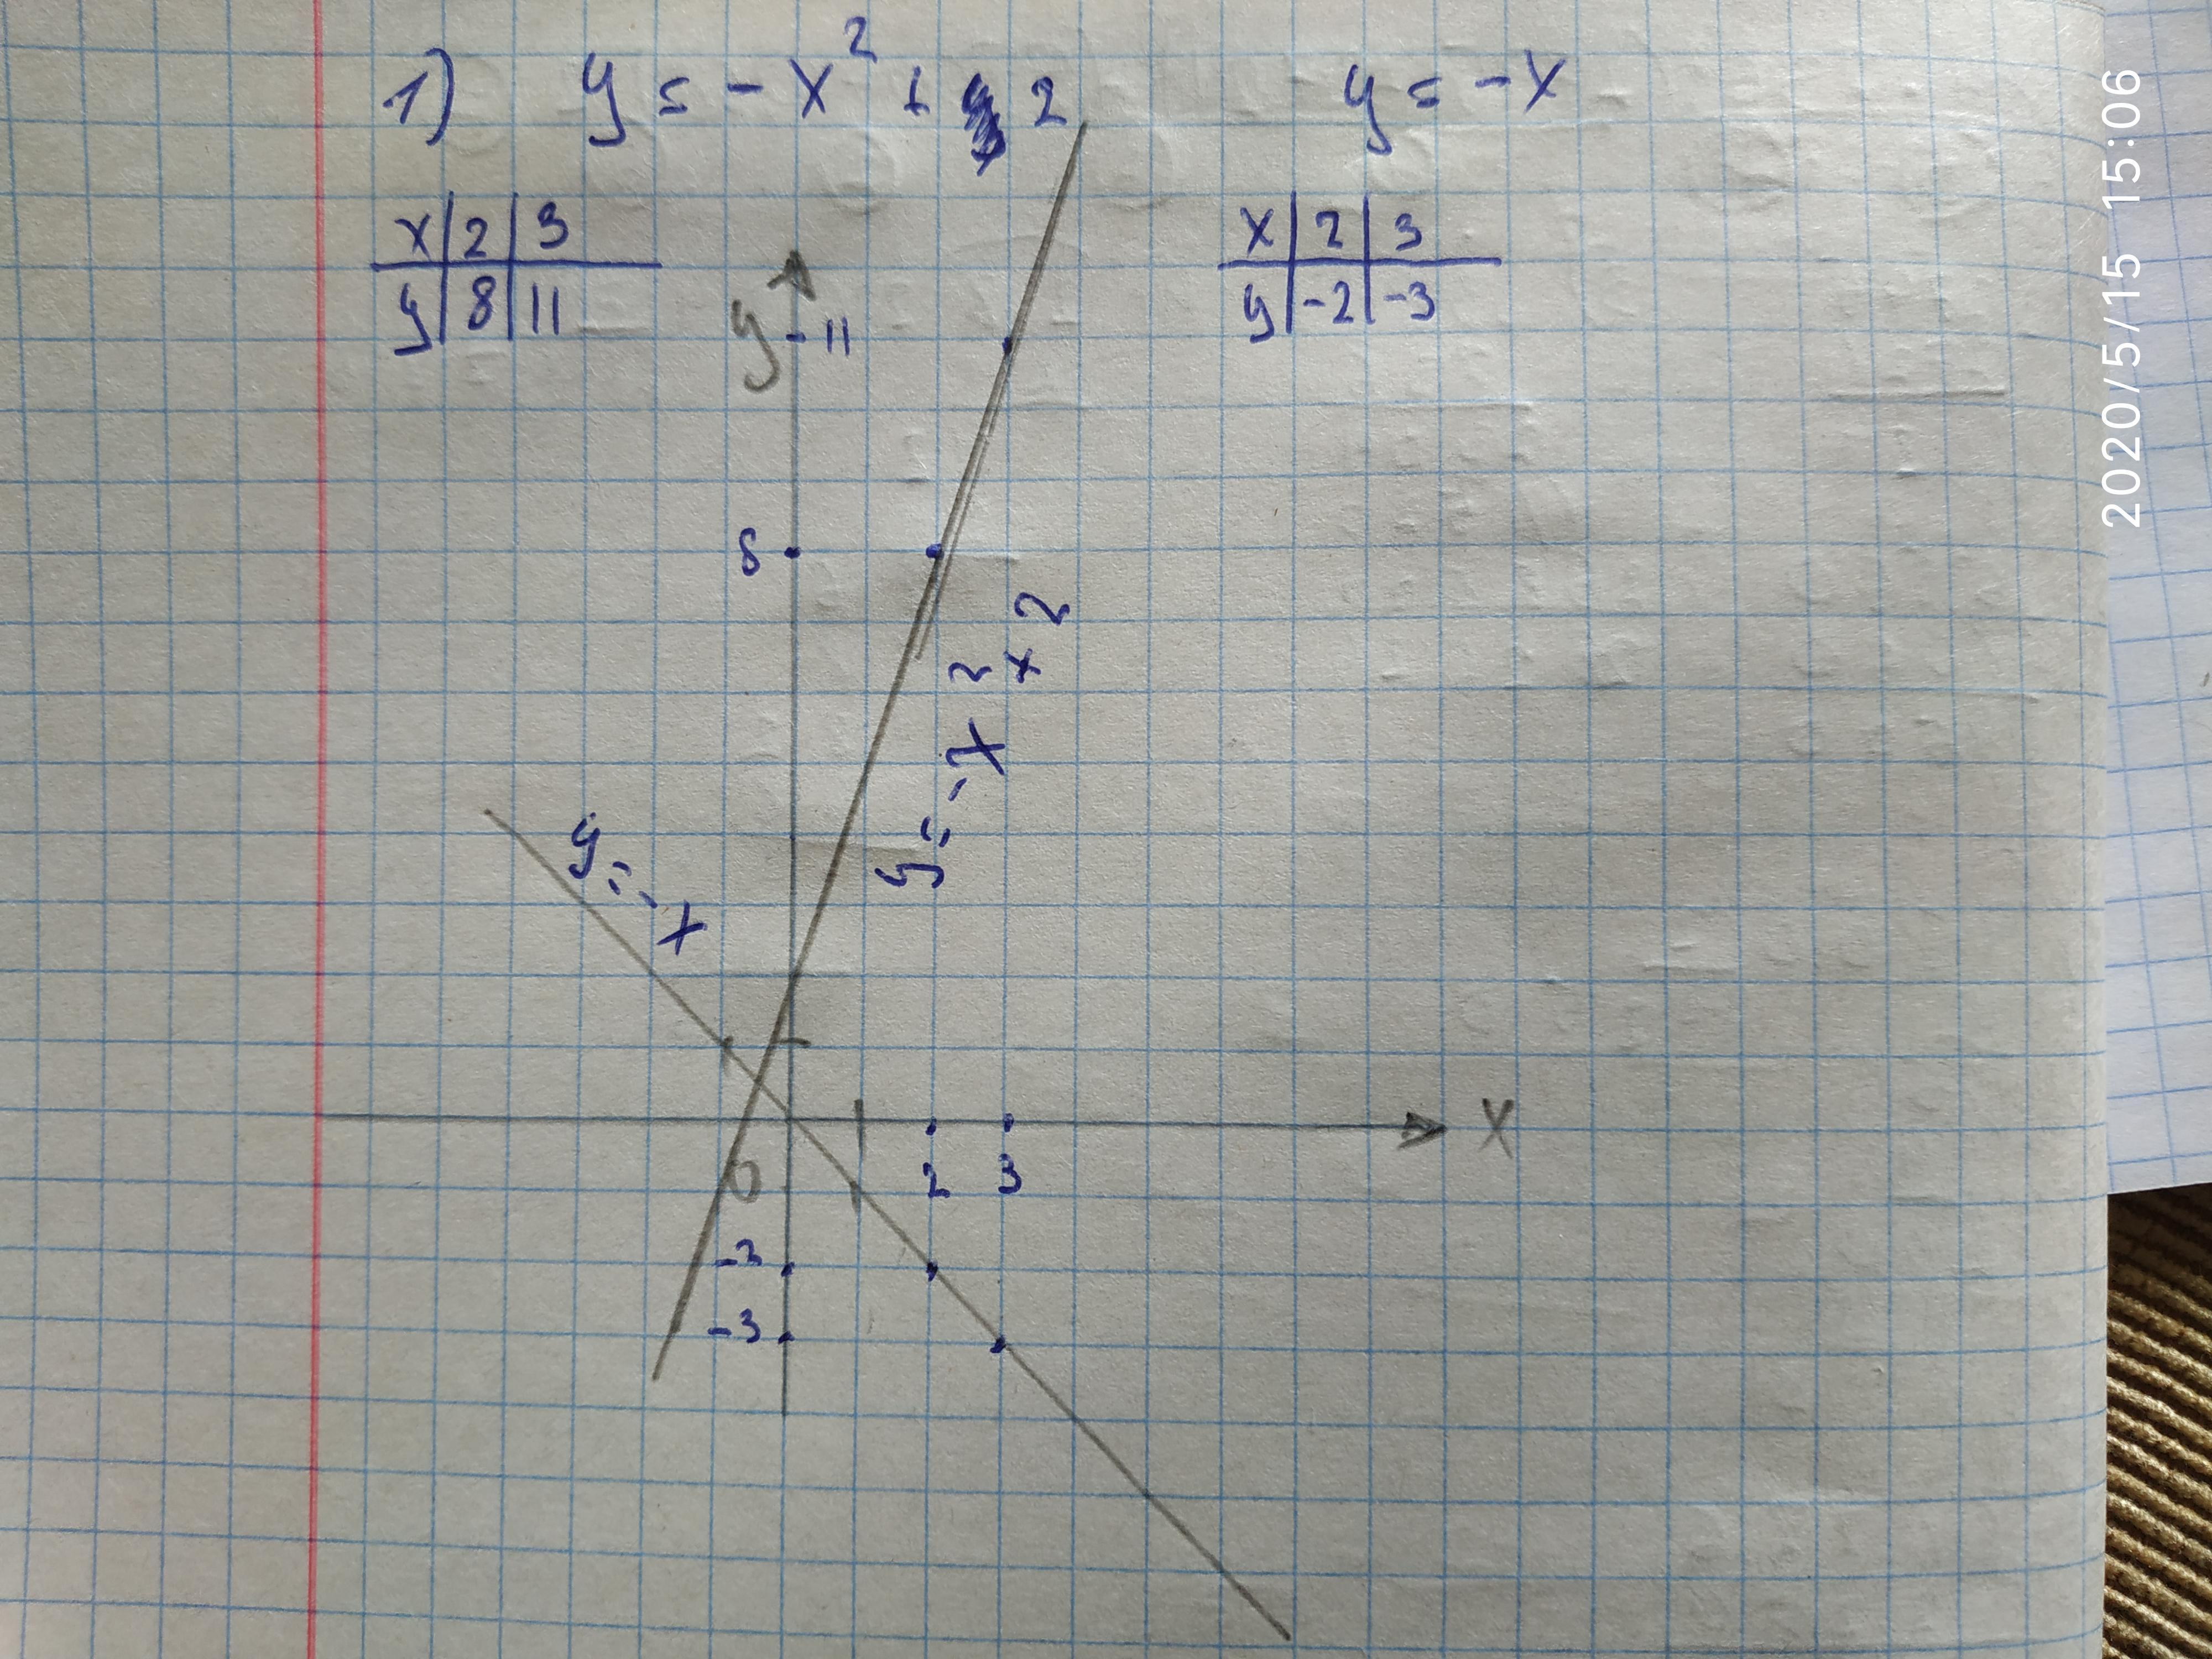 1) y = -x² + 2
y = -x
x | 2 | 3
y | 8 | 11
x | 2 | 3
y | -2 | -3
y
11
8
y = -x² + 2
y = -x
x
0
2
3
-2
-3
2020/5/15 15:06